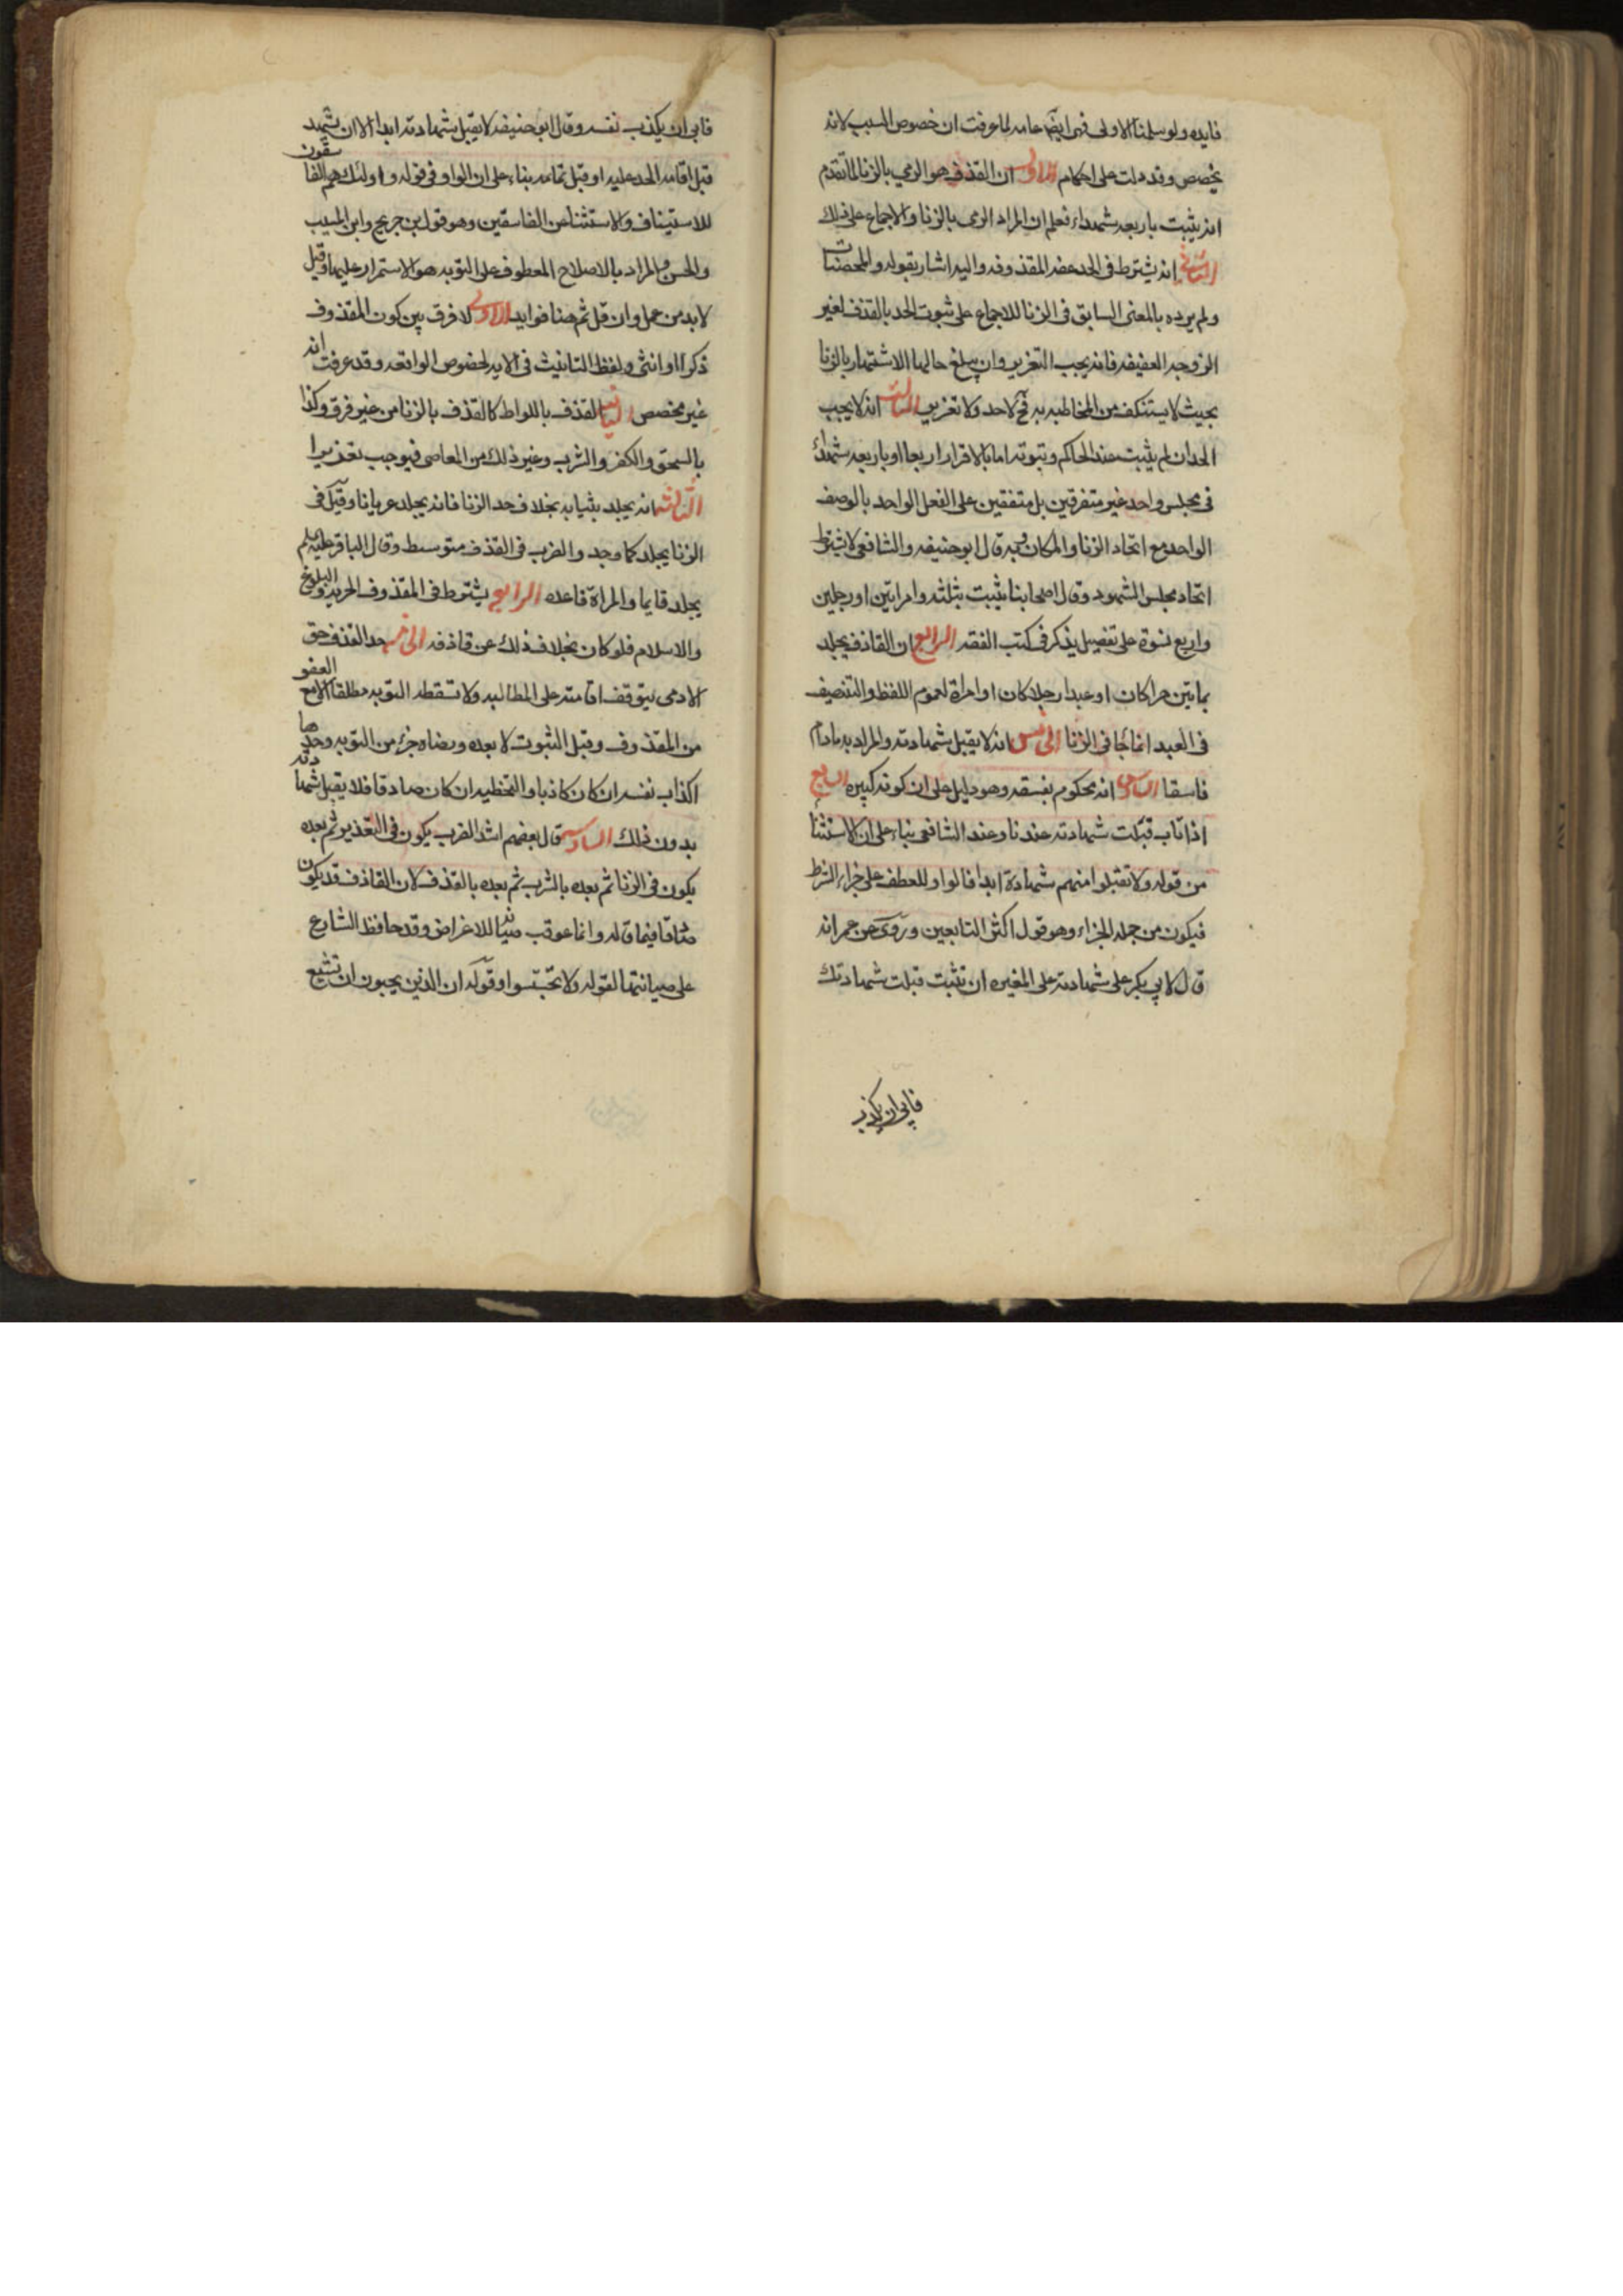 فايده ولو سلمنا الاولى فهى ايضا عامه لما عرفت ان خصوص السبب لانه
يخصص وقد دلت على احكام الاول ان القذف هو الرمي بالزنا لما تقدم
انه يثبت باربعه شهداء فعلم ان المراد الرمى بالزنا والاجماع على ذلك
الثاني انه يشترط فى الحد عفه المقذوفه واليه اشار بقوله والمحصنات
ولم يرده بالمعنى السابق فى الزنا للاجماع على ثبوت الحد بالقذف لغير
الزوجه العفيفه فانه يجب التعزير وان يبلغ حالها الاشتهار بالزنا
بحيث لا يستنكف من المخاطبه به فح لاحد ولا تعزير الثالث انه لا يجب
الحد ان لم يثبت عند الحاكم وثبوته اما بالاقرار اربعا او باربعه شهداء
فى مجلس واحد غير متفرقين بل متفقين على الفعل الواحد بالوصف
الواحد مع اتحاد الزنا والمكان وبه قال ابو حنيفه والشافعى لا يشترط
اتحاد مجلس الشهود وقال اصحابنا يثبت بثلثه وامراتين او رجلين
واربع نسوة على تفصيل يذكر فى كتب الفقه الرابع ان القاذف يجلد
بماتين حرا كان او عبدا رجلا كان او امراة لعموم اللفظ والتنصيف
فى العبد انما جا فى الزنا الخامس انه لا يقبل شهادته والمراد به مادام
فاسقا السادس انه محكوم بفسقه وهو دليل على ان كونه كبيره السابع
اذا تاب قبلت شهادته عندنا وعند الشافعى بناء على ان الاستثنا
من قوله ولا تقبلوا منهم شهادة ابدا فالواو للعطف على جزاء الشرط
فيكون من جمله الجزاء وهو قول اكثر التابعين وروى عن عمر انه
قال لابي بكر على شهادته على المغيره ان تثبت قبلت شهادتك
فابى ان يكذب
فابى ان يكذب نفسه وقال ابو حنيفه لا يقبل شهادته ابدا الا ان شهد
قبل اقامه الحد عليه او قبل تمامه بناء على ان الواو فى قوله واولئك هم الفاسقون
للاستيناف والاستثنا من الفاسقين وهو قول بن جريج وابن المسيب
والحسن والمراد بالاصلاح المعطوف على التوبه هو الاستمرار عليها وقيل
لابد من عمل وان قل ثم هنا فوايد الاول لا فرق بين كون المقذوف
ذكرا او انثى ولفظ التانيث فى الايه لخصوص الواقعه وقد عرفت انه
غير مخصص الثاني القذف باللواط كالقذف بالزنا من غير فرق وكذا
بالسحق والكفر والشرب وغير ذلك من المعاصى فيوجب تعزيرا
الثالث انه يجلد بثيابه بخلاف حد الزنا فانه يجلد عريانا وقيل فى
الزنا يجلد كما وجد والضرب فى القذف متوسط وقال الباقر عليه السلم
يجلد قايما والمراة قاعده الرابع يشترط فى المقذوف الحريه والبلوغ
والاسلام فلو كان بخلاف ذلك عن قاذفه الخامس حد القذف حق
الادمى يتوقف اقامته على المطالبه ولا تسقطه التوبه مطلقا الا مع العفو
من المقذوف وقبل الثبوت لا بعده ورضاه جزء من التوبه وحدها
اكذاب نفسه ان كان كاذبا والتخطيه ان كان صادقا فلا يقبل شهادته
بدون ذلك السادس قال بعضهم اشد الضرب يكون فى التعذير ثم بعده
يكون فى الزنا ثم بعده بالشرب ثم بعده بالقذف لان القاذف قد يكون
صادقا فيما قاله وانما عوقب صيانه للاعراض وقد حافظ الشارع
على صيانتها لقوله ولا تجسسوا وقوله ان الذين يحبون ان تشيع